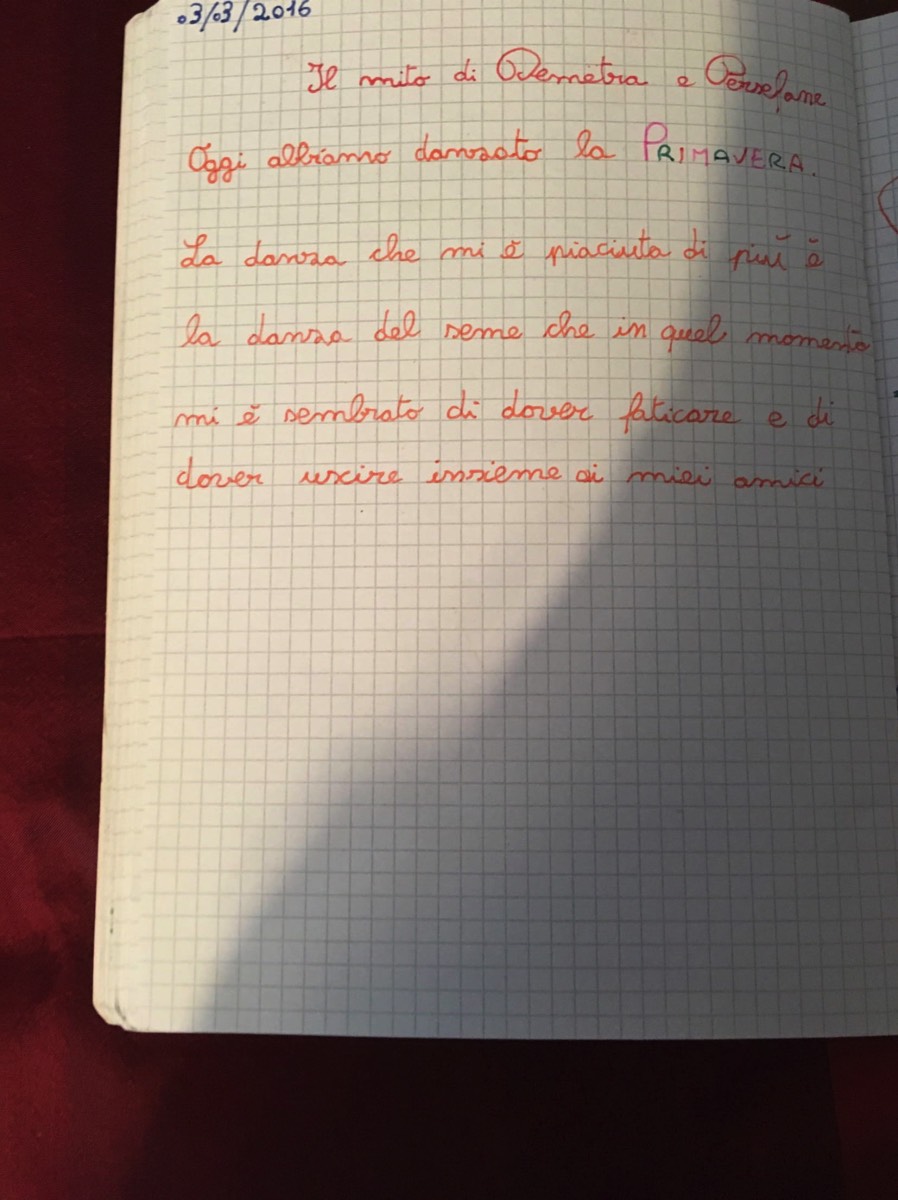 03/03/2016
Il mito di Demetra e Persefone
Oggi abbiamo danzato la PRIMAVERA.
La danza che mi è piaciuta di più è
la danza del seme che in quel momento
mi è sembrato di dover faticare e di
dover uscire insieme ai miei amici